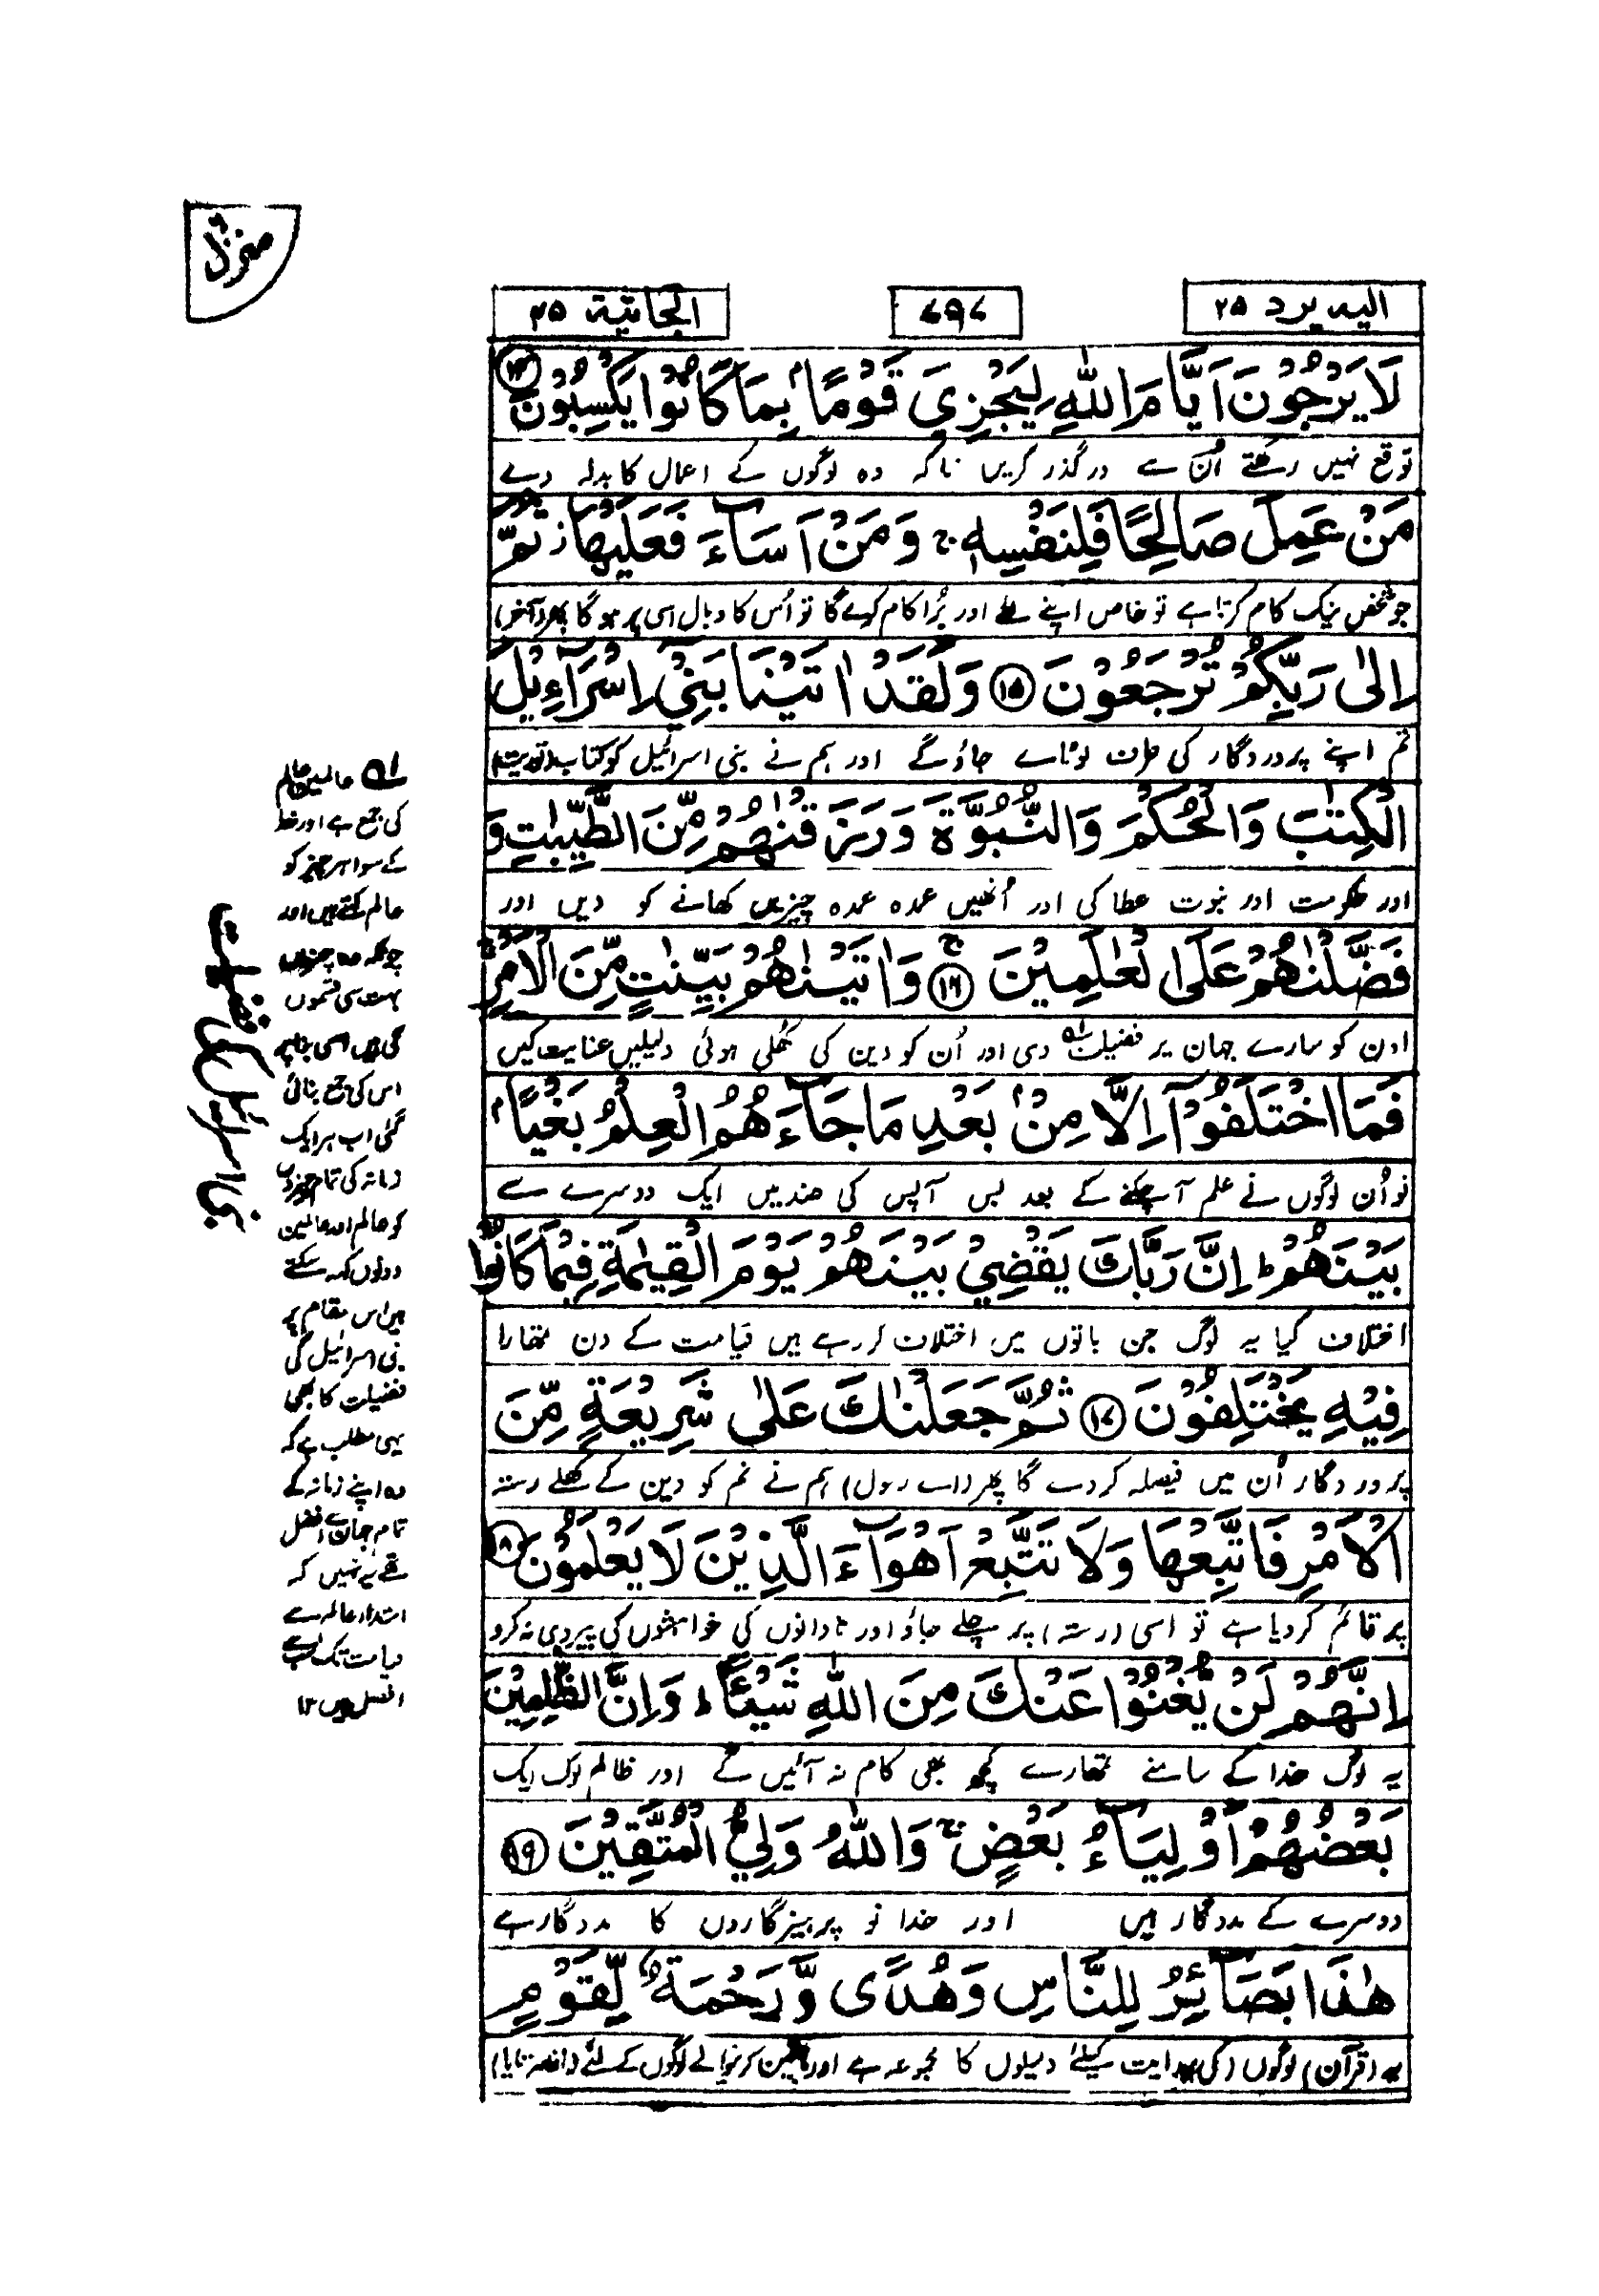 منزل ٦
الیه یرد ٢٥
٧٩٧
الجاثیة ٤٥
لَا يَرْجُوْنَ اَيَّامَ اللّٰهِ لِيَجْزِيَ قَوْمًاۢ بِمَا كَانُوْا يَكْسِبُوْنَ ⑭
توقع نہیں رکھتے اُن سے درگذر کریں تاکہ وہ لوگوں کے اعمال کا بدلہ دے
مَنْ عَمِلَ صَالِحًا فَلِنَفْسِهٖ ۚ وَمَنْ اَسَآءَ فَعَلَيْهَا ز ثُمَّ
جو شخص نیک کام کرتا ہے تو خاص اپنے لئے اور بُرا کام کرے گا تو اُس کا وبال اسی پر ہو گا پھر (آخر)
اِلٰى رَبِّكُمْ تُرْجَعُوْنَ ⑮ وَلَقَدْ اٰتَيْنَا بَنِيْٓ اِسْرَآءِيْلَ
تم اپنے پروردگار کی طرف لوٹائے جاؤ گے اور ہم نے بنی اسرائیل کو کتاب (توریت)
الْكِتٰبَ وَالْحُكْمَ وَالنُّبُوَّةَ وَرَزَقْنٰهُمْ مِّنَ الطَّيِّبٰتِ وَ
اور حکومت اور نبوت عطا کی اور اُنھیں عمدہ عمدہ چیزیں کھانے کو دیں اور
فَضَّلْنٰهُمْ عَلَى الْعٰلَمِيْنَ ۚ ⑯ وَاٰتَيْنٰهُمْ بَيِّنٰتٍ مِّنَ الْاَمْرِ ۚ
اون کو سارے جہان پر فضیلت لہ دی اور اُن کو دین کی کُھلی ہوئی دلیلیں عنایت کیں
فَمَا اخْتَلَفُوْٓا اِلَّا مِنْۢ بَعْدِ مَا جَآءَهُمُ الْعِلْمُ بَغْيًاۢ
تو اُن لوگوں نے علم آ چکنے کے بعد بس آپس کی ضد میں ایک دوسرے سے
بَيْنَهُمْ ؕ اِنَّ رَبَّكَ يَقْضِيْ بَيْنَهُمْ يَوْمَ الْقِيٰمَةِ فِيْمَا كَانُوْا
اختلاف کیا یہ لوگ جن باتوں میں اختلاف کر رہے ہیں قیامت کے دن تمھارا
فِيْهِ يَخْتَلِفُوْنَ ⑰ ثُمَّ جَعَلْنٰكَ عَلٰى شَرِيْعَةٍ مِّنَ
پروردگار اُن میں فیصلہ کر دے گا پھر (اے رسول) ہم نے تم کو دین کے کھلے رستہ
الْاَمْرِ فَاتَّبِعْهَا وَلَا تَتَّبِعْ اَهْوَآءَ الَّذِيْنَ لَا يَعْلَمُوْنَ ⑱
پر قائم کر دیا ہے تو اسی (رستہ) پر چلے جاؤ اور نادانوں کی خواہشوں کی پیروی نہ کرو
اِنَّهُمْ لَنْ يُّغْنُوْا عَنْكَ مِنَ اللّٰهِ شَيْـًٔا ؕ وَاِنَّ الظّٰلِمِيْنَ
یہ لوگ خدا کے سامنے تمھارے کچھ بھی کام نہ آئیں گے اور ظالم لوگ ایک
بَعْضُهُمْ اَوْلِيَآءُ بَعْضٍ ۚ وَاللّٰهُ وَلِيُّ الْمُتَّقِيْنَ ⑲
دوسرے کے مددگار ہیں اور خدا تو پرہیزگاروں کا مددگار ہے
هٰذَا بَصَآئِرُ لِلنَّاسِ وَهُدًى وَّرَحْمَةٌ لِّقَوْمٍ
یہ (قرآن) لوگوں (کی) ہدایت کیلئے دلیلوں کا مجموعہ ہے اور یقین کرنیوالے لوگوں کے لئے
لہ عالمین عالم
کی جمع ہے اور خدا
کے سوا ہر چیز کو
عالم کہتے ہیں اور
چونکہ وہ چیزیں
بہت سی قسموں
کی ہیں اسی بنا پر
اس کی جمع بنائی
گئی اب ہر ایک
زمانہ کی تمام چیزوں
کو عالم اور عالمین
دونوں کہہ سکتے
ہیں اس مقام پر
بنی اسرائیل کی
فضیلت کا بھی
یہی مطلب ہے کہ
وہ اپنے زمانہ کے
تمام جہان سے افضل
تھے یہ نہیں کہ
ابتداء عالم سے
قیامت تک سب سے
افضل ہیں ۱۲
بنی اسرائیل کی فضیلت